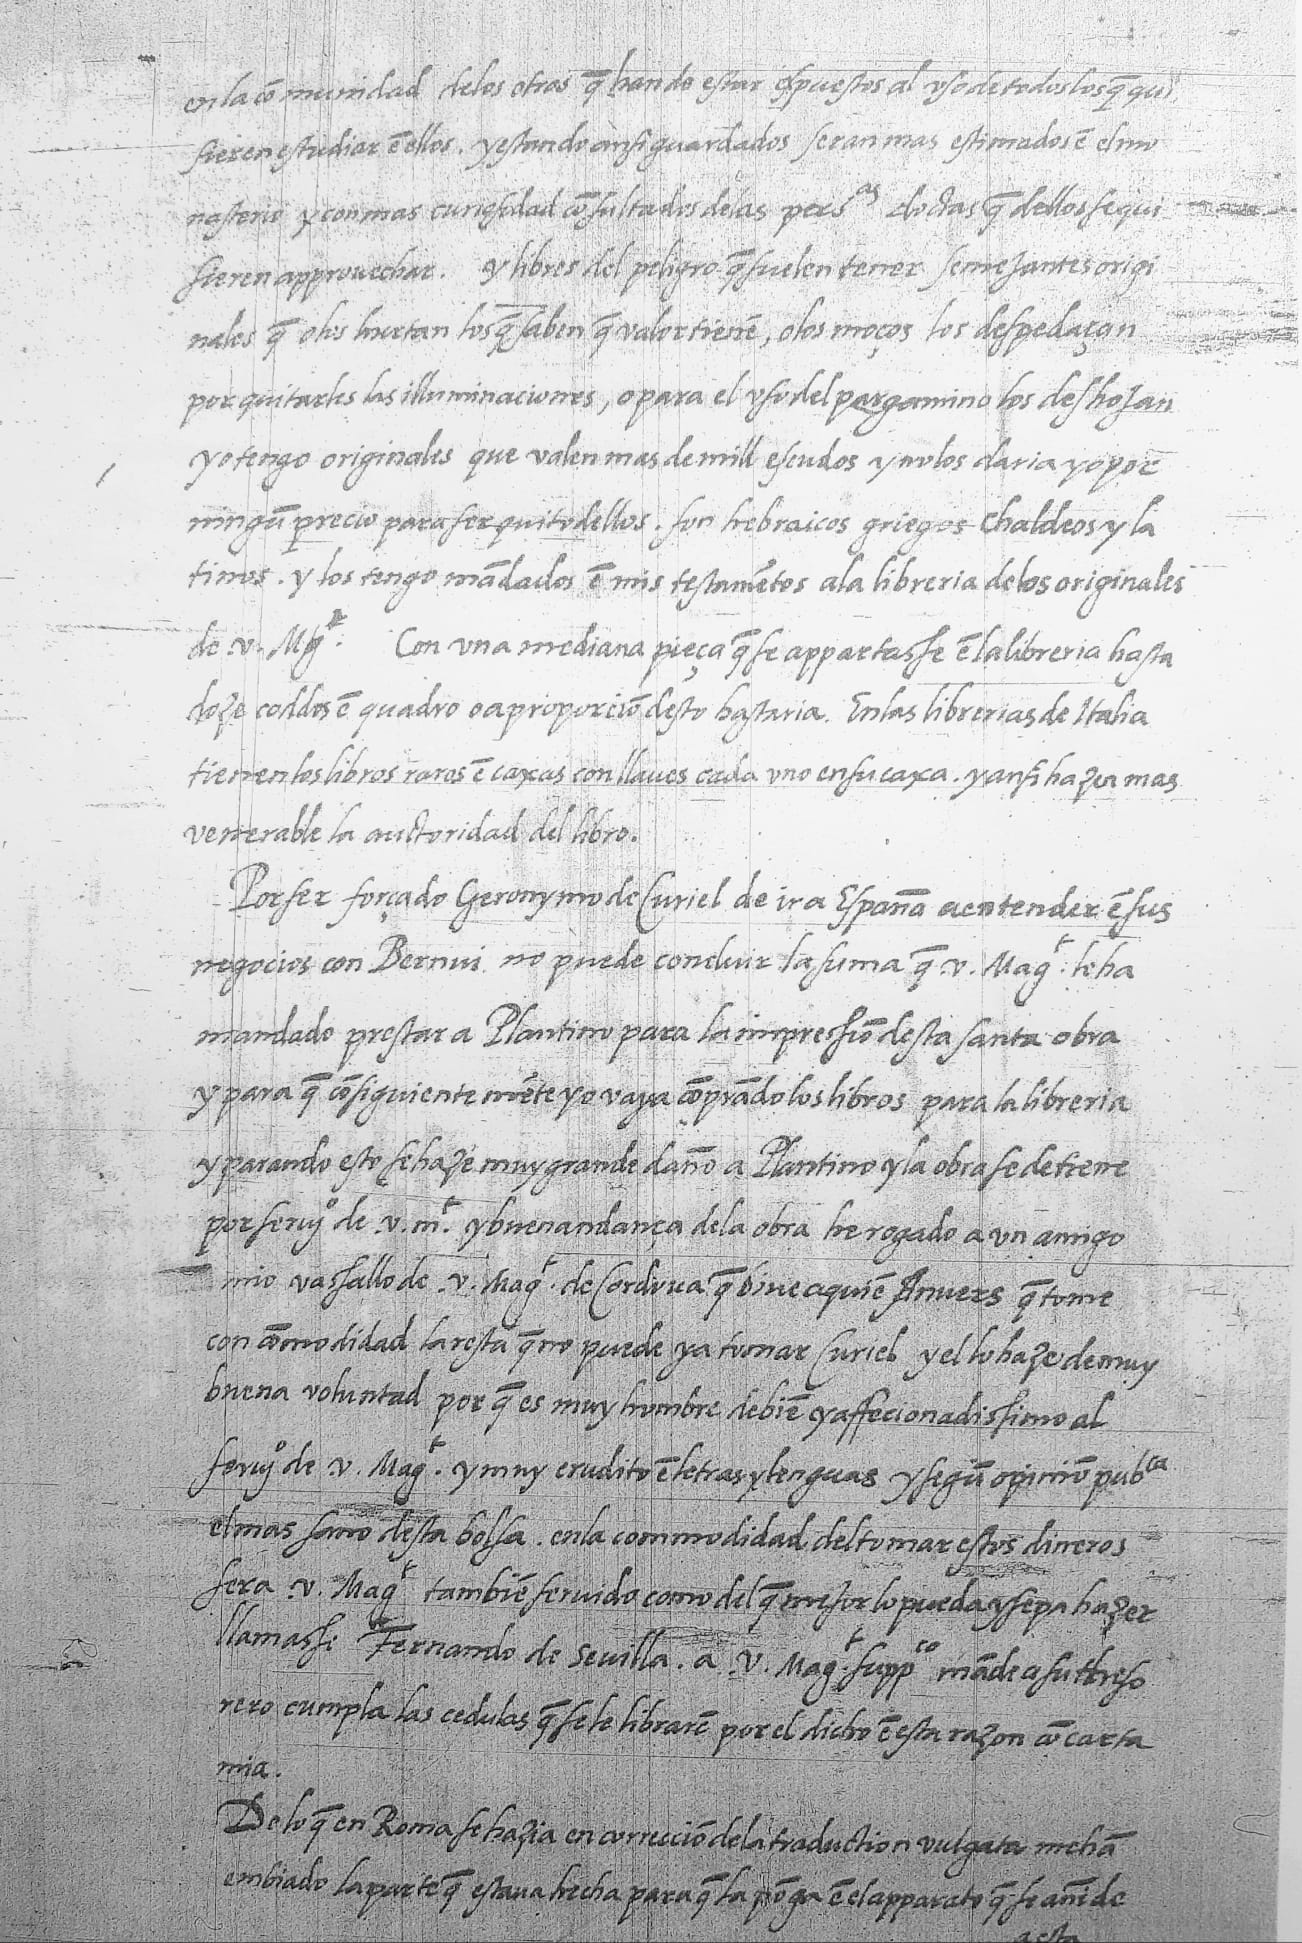 en la cõmunidad de los otros q̃ han de estar espuestos al vso de todos los q̃ qui
sieren estudiar ẽ ellos. y estando ansi guardados seran mas estimados ẽ el mo
nasterio y con mas curiosidad cõsultados de las persas doctas q̃ dellos se qui
sieren approuechar. y libres del peligro q̃ suelen tener semejantes origi
nales q̃ o los hurtan los q̃ saben q̃ valor tienẽ, o los moços los despedaçan
por quitarles las illuminaciones, o para el vso del pargamino los deshojan
yo tengo originales que valen mas de mill escudos y no los daria yo por
ningũ precio para ser quito dellos. son hebraicos griegos chaldeos y la
tinos. y los tengo mãdados ẽ mis testamẽtos a la libreria de los originales
de .v. Mgt. Con vna mediana pieça q̃ se appartasse ẽ la libreria hasta
doze coddos ẽ quadro o a proporciõ desto bastaria. En las librerias de Italia
tienen los libros raros ẽ caxas con llaues cada vno en su caxa. y ansi hazen mas
venerable la auctoridad del libro.
Por ser forçado Geronymo de Curiel de ir a España a entender ẽ sus
negocios con Bernui no puede concluir la suma q̃ .v. Magt. le ha
mandado prestar a Plantino para la impressiõ desta santa obra
y para q̃ cõsiguientemẽte yo vaya cõprãdo los libros para la libreria
y parando esto se haze muy grande daño a Plantino y la obra se detiene
por seruyo de .v. mt. y buenandança de la obra he rogado a vn amigo
mio vassallo de .v. Magt. de Cordoua q̃ viue aqui ẽ Anuers q̃ tome
con cõmodidad la resta q̃ no puede ya tomar Curiel y el lo haze de muy
buena voluntad por q̃ es muy hombre de biẽ y affecionadissimo al
seruyo de .v. Magt. y muy erudito ẽ letras y lenguas y segũ opiniõ pubca
el mas sano desta bolsa. en la commodidad del tomar estos dineros
sera .v. Magt tambiẽ seruido como del q̃ mejor lo pueda y sepa hazer
llamasse Fernando de Seuilla. a .V. Magt. suppco mãde a su threso
rero cumpla las cedulas q̃ se le librarẽ por el dicho ẽ esta razon cõ carta
mia.
De lo q̃ en Roma se hazia en correcciõ de la traduction vulgata me hã
embiado la parte q̃ estaua hecha para q̃ la põga ẽ el apparato q̃ se añide
a esta